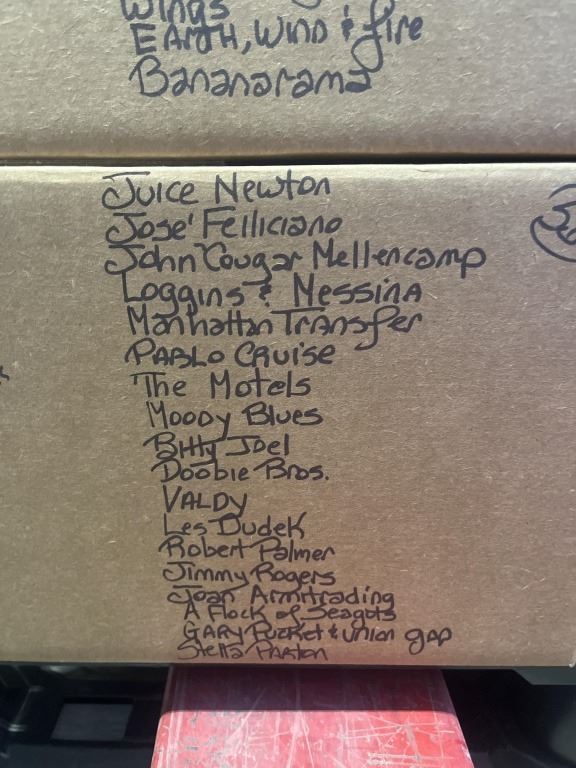 Wings
EARTH, WIND & fire
Bananarama
Juice Newton
Jose' Felliciano
John Cougar Mellencamp
Loggins & Messina
Manhattan Transfer
PABLO CRUISE
The Motels
Moody Blues
Billy Joel
Doobie Bros.
VALDY
Les Dudek
Robert Palmer
Jimmy Rogers
Joan Armitrading
A Flock of Seagots
GARY Pucket & union gap
Stella PARTON